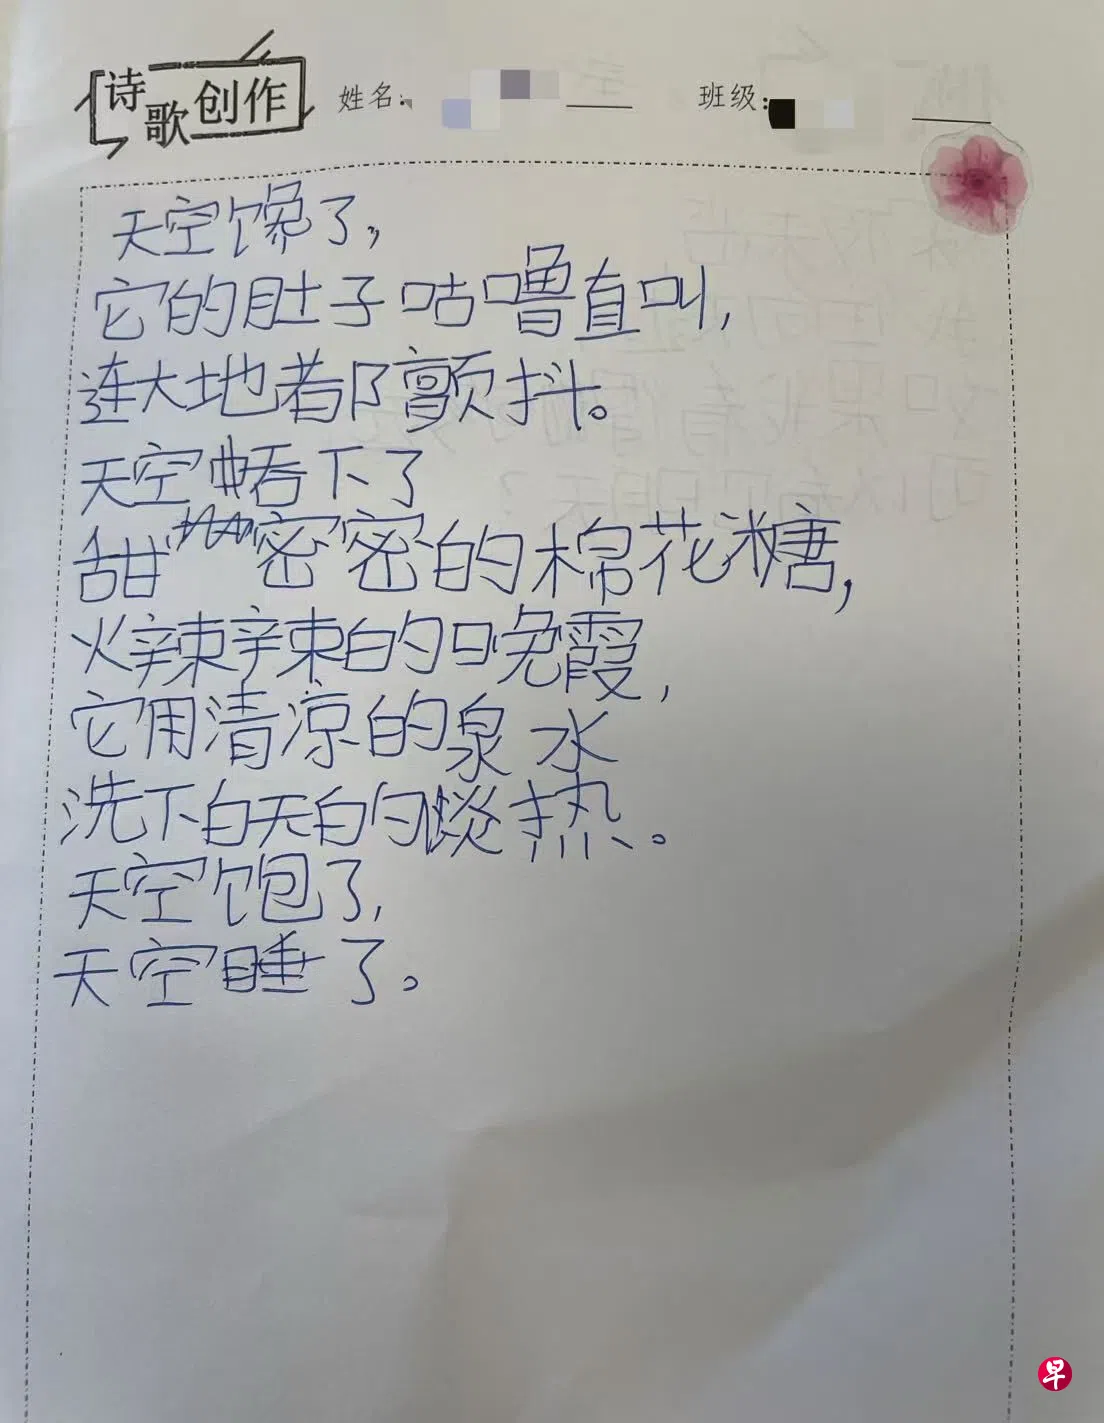 诗歌创作 姓名: 班级:
天空馋了,
它的肚子咕噜直叫,
连大地都颤抖。
天空吞下了
甜密密的棉花糖,
火辣辣的晚霞,
它用清凉的泉水
洗下白天的热。
天空饱了,
天空睡了。
早